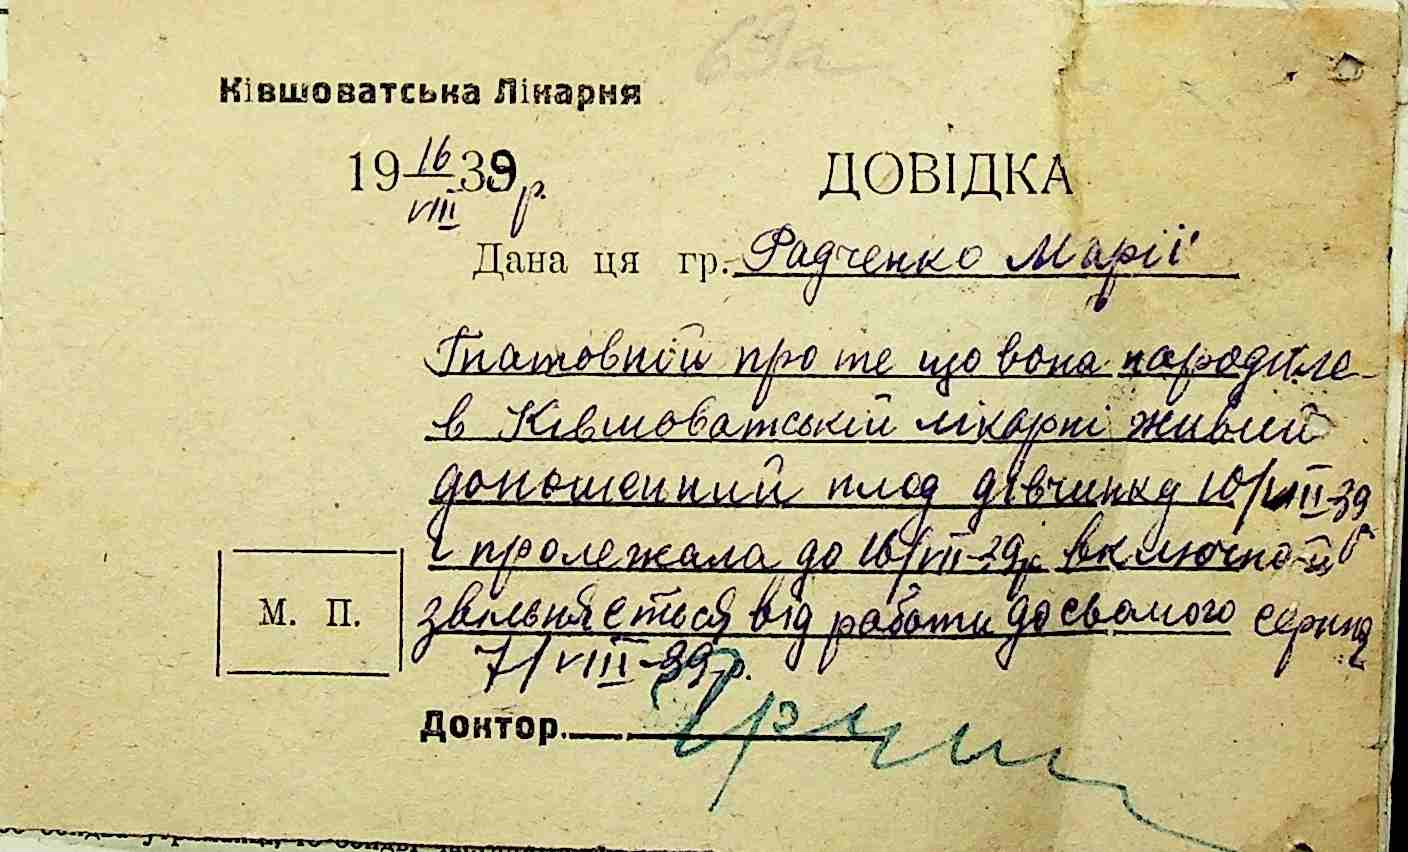 69а
Ківшоватська Лікарня
19 16/VIII 39 р.
ДОВІДКА
Дана ця гр. Радченко Марії
Гнатовній про те що вона народила
в Ківшоватській лікарні живий
доношенний плод дівчинку 10/VII-39
і пролежала до 16/VII-39р включно й
звільняється від работи до сьомого серпня
7/VIII-39р.
М. П.
Доктор.